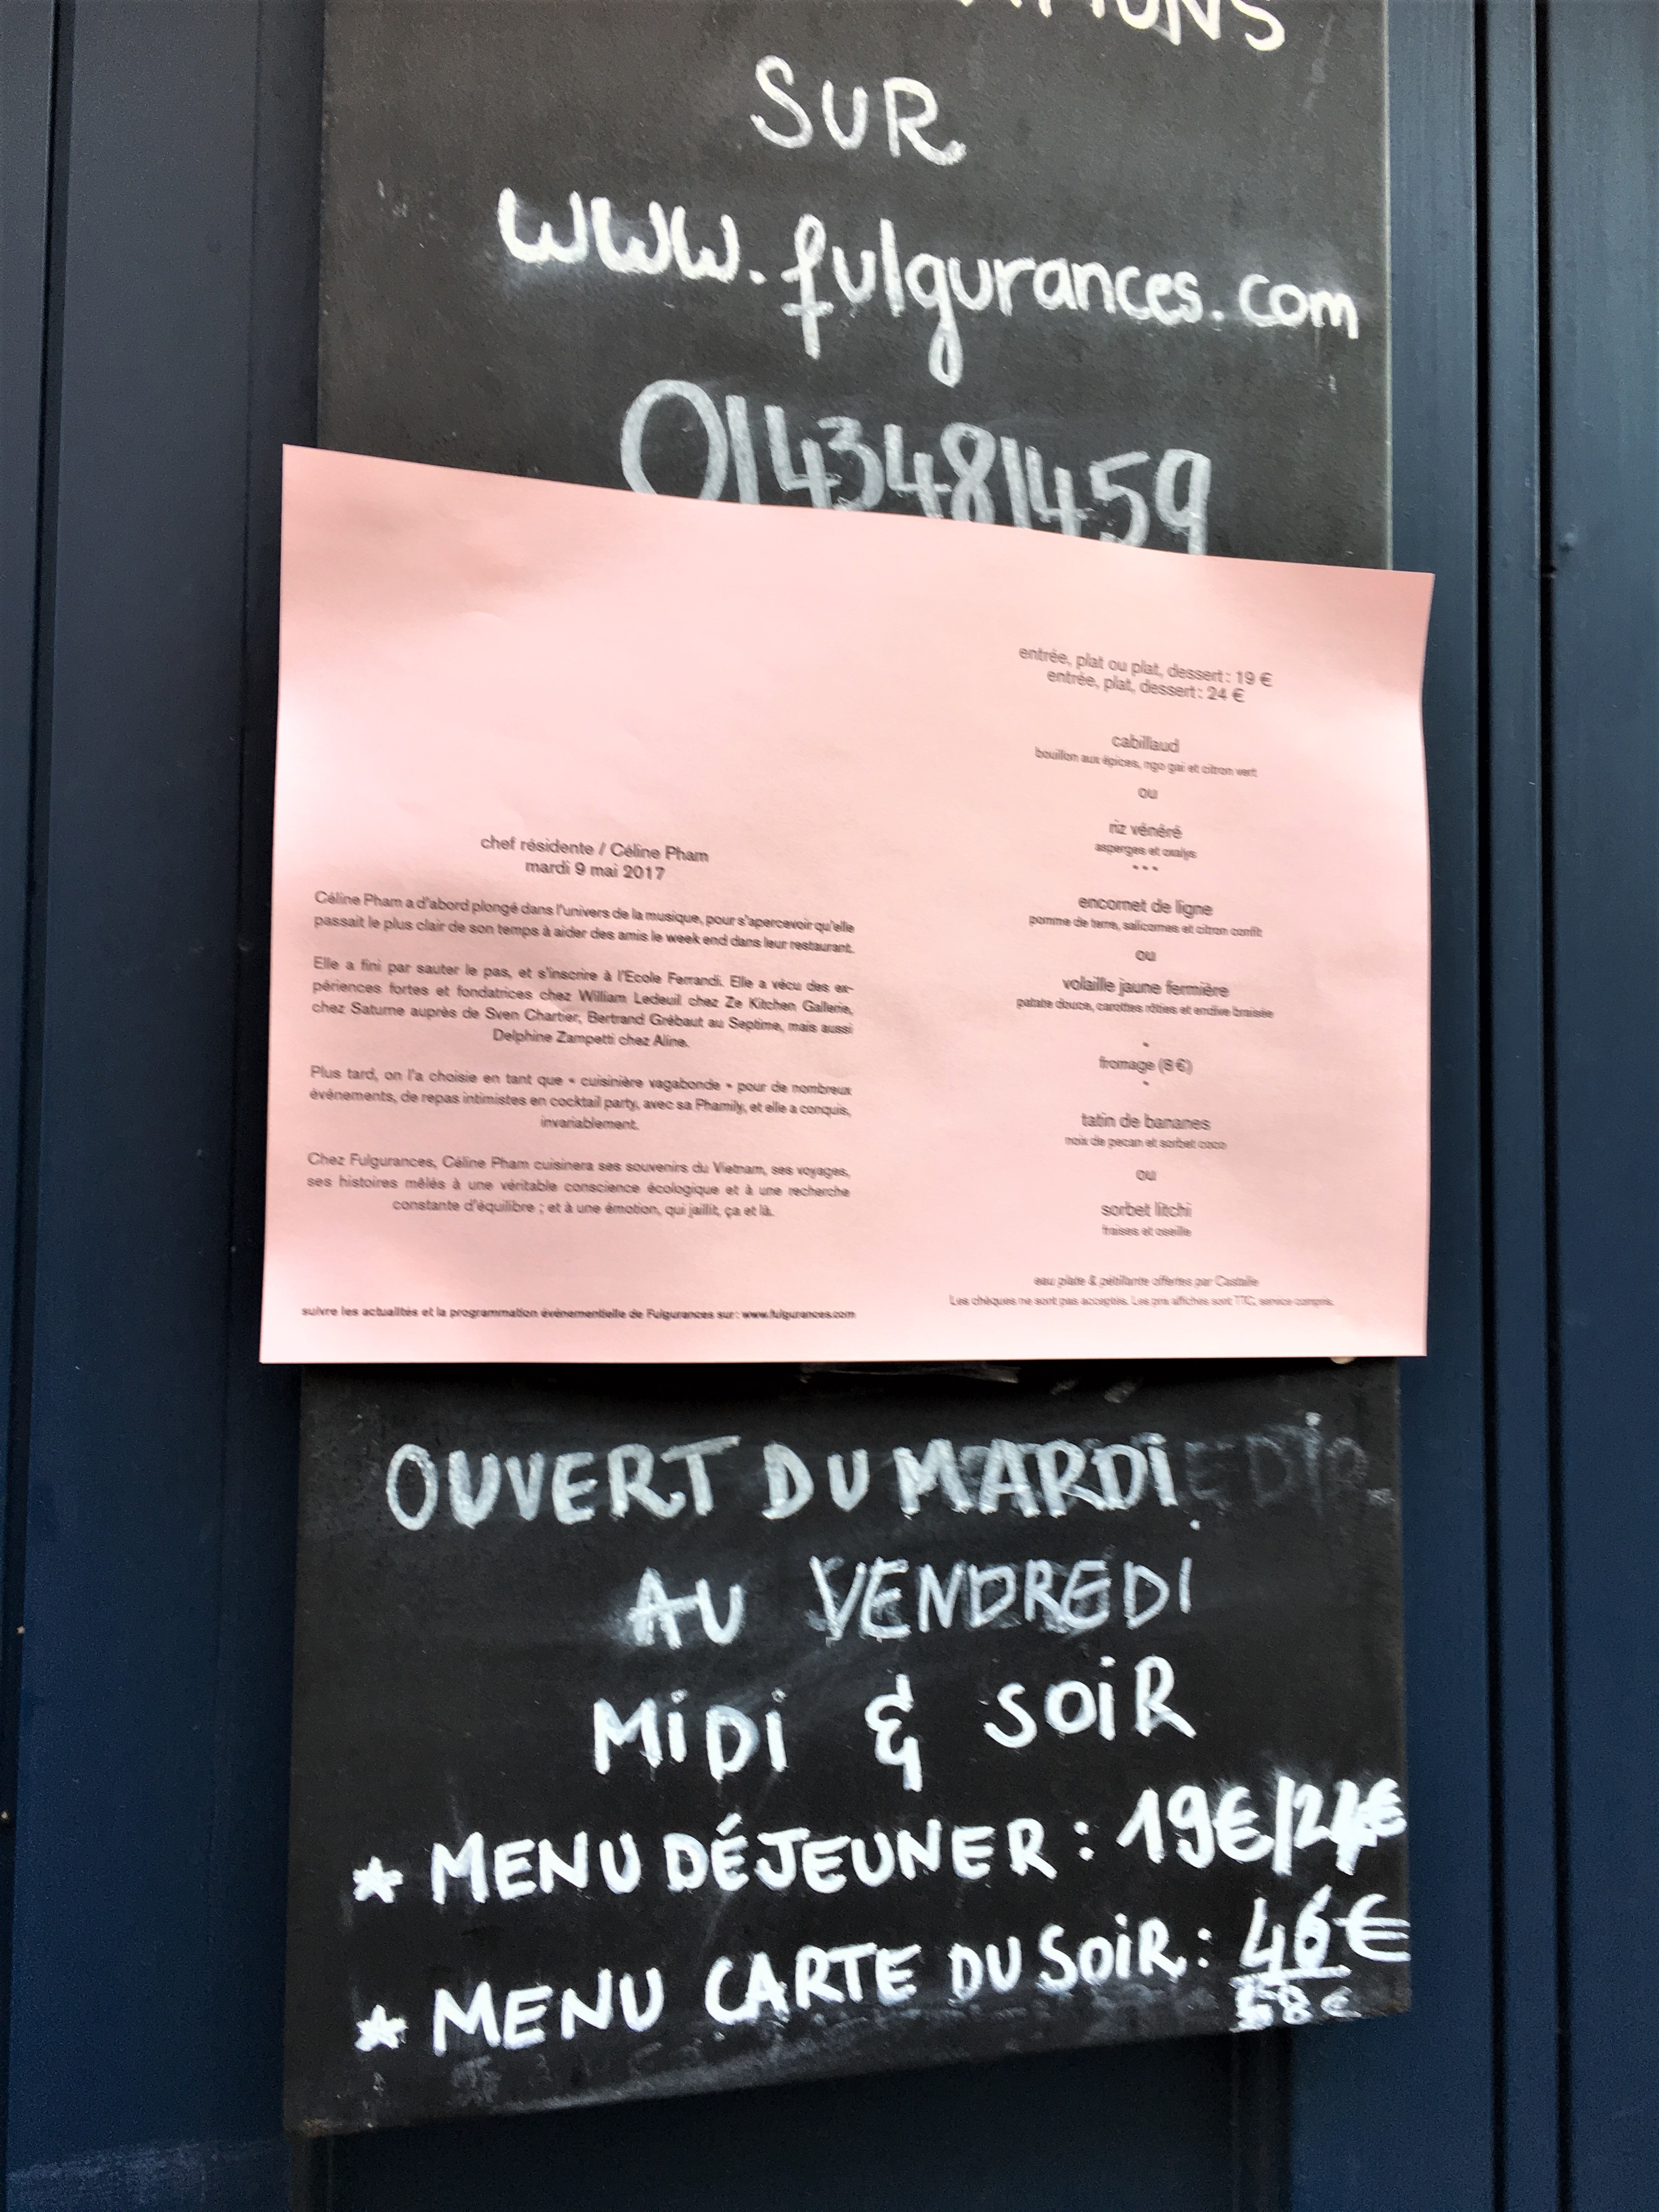 SUR
www.fulgurances.com
0143481459
chef résidente / Céline Pham
mardi 9 mai 2017
Céline Pham a d'abord plongé dans l'univers de la musique, pour s'apercevoir qu'elle
passait le plus clair de son temps à aider des amis le week end dans leur restaurant.
Elle a fini par sauter le pas, et s'inscrire à l'Ecole Ferrandi. Elle a vécu des ex-
périences fortes et fondatrices chez William Ledeuil chez Ze Kitchen Gallerie,
chez Saturne auprès de Sven Chartier, Bertrand Grébaut au Septime, mais aussi
Delphine Zampetti chez Aline.
Plus tard, on l'a choisie en tant que « cuisinière vagabonde » pour de nombreux
événements, de repas intimistes en cocktail party, avec sa Phamily, et elle a conquis,
invariablement.
Chez Fulgurances, Céline Pham cuisinera ses souvenirs du Vietnam, ses voyages,
ses histoires mêlés à une véritable conscience écologique et à une recherche
constante d'équilibre ; et à une émotion, qui jaillit, ça et là.
suivre les actualités et la programmation événementielle de Fulgurances sur : www.fulgurances.com
entrée, plat ou plat, dessert : 19 €
entrée, plat, dessert : 24 €
cabillaud
bouillon aux épices, ngo gai et citron vert
ou
riz vénéré
asperges et oxalys
***
encornet de ligne
pomme de terre, salicornes et citron confit
ou
volaille jaune fermière
patate douce, carottes rôties et endive braisée
*
fromage (8 €)
*
tatin de bananes
noix de pecan et sorbet coco
ou
sorbet litchi
fraises et oseille
eau plate & pétillante offertes par Castalie
Les chèques ne sont pas acceptés. Les prix affichés sont TTC, service compris.
OUVERT DU MARDI
AU VENDREDI
MIDI & SOIR
* MENU DÉJEUNER : 19€/24€
* MENU CARTE DU SOIR : 46€
58€